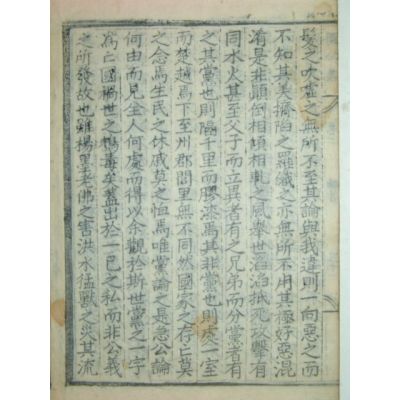 髮之吹虛之無所不至其論與我違則一向惡之而
不知其美擠陷之羅織之亦無所不用其極好惡混
淆是非顚倒相傾相軋之風擧世滔滔抵死攻擊有
同水火甚至父子而立異者有之兄弟而分黨者有
之其黨也則隔千里而膠漆焉其非黨也則處一室
而楚越焉下至州郡閭里無不同然國家之存亡莫
之念焉生民之休戚莫之恤焉唯黨論之是急公論
何由而見全人何處而得以余觀於斯世黨之一字
爲亡國禍世之毒矣蓋出於一己之私而非公義
之所發故也雖楊墨老佛之害洪水猛獸之災其流